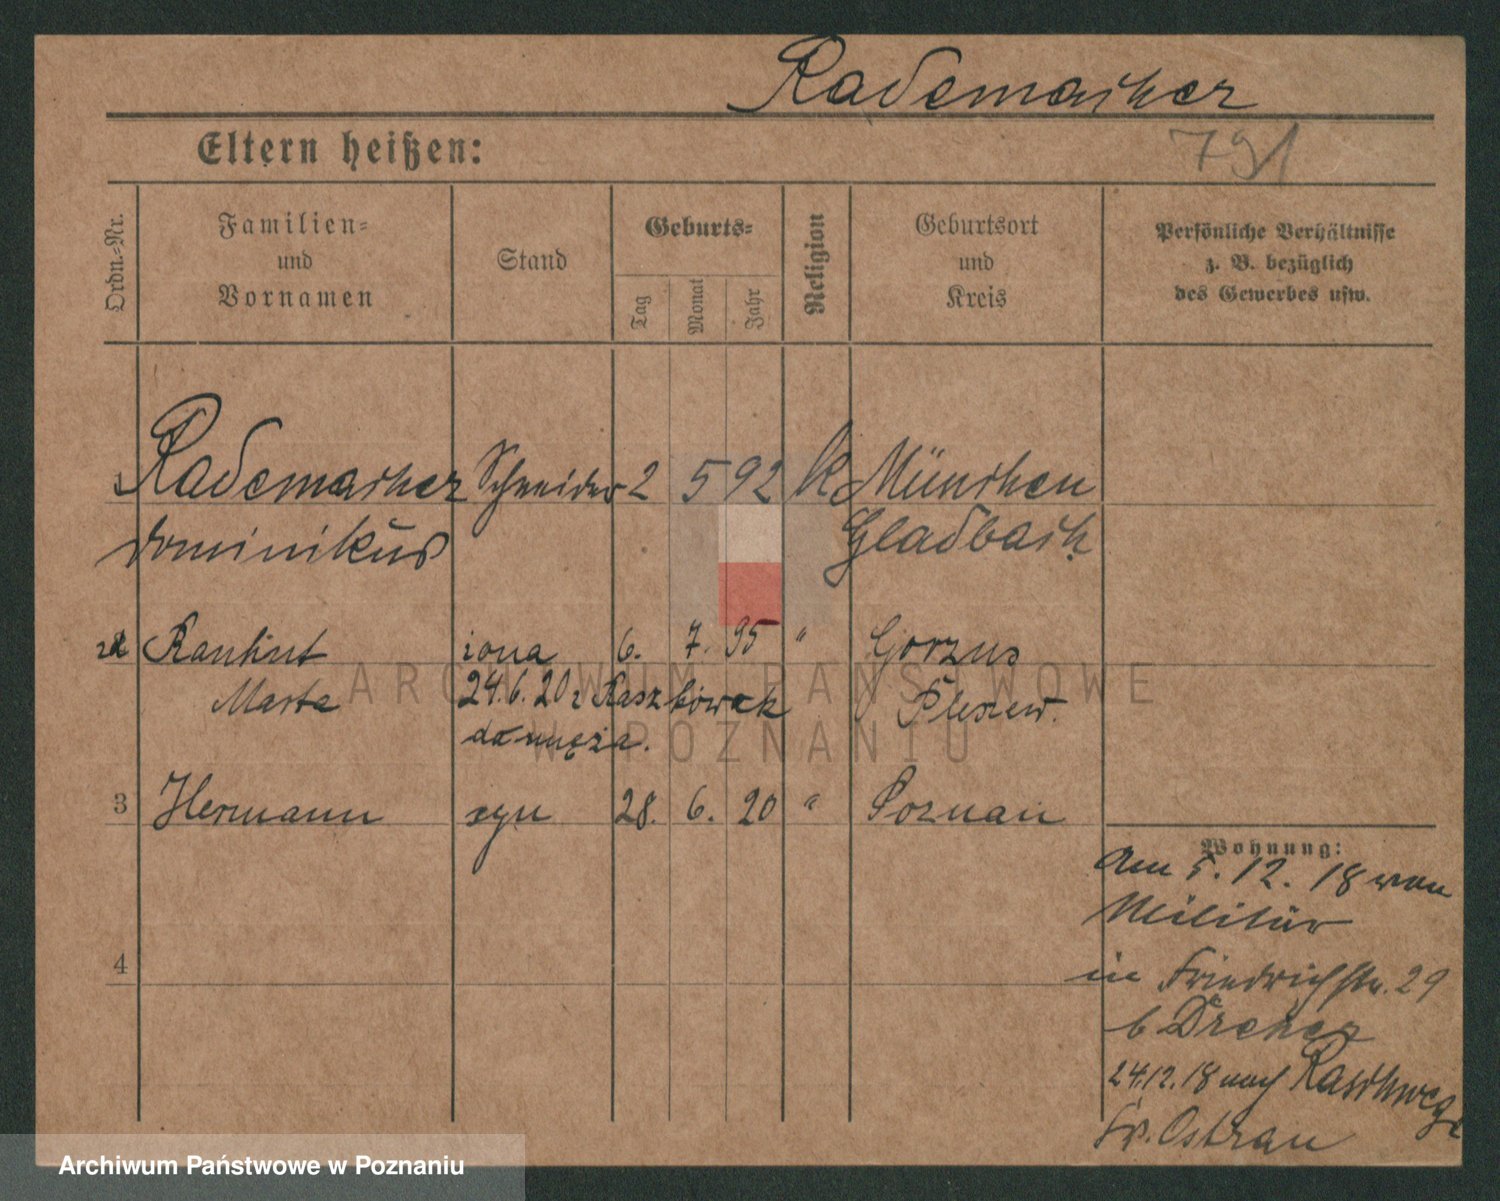 Rademacher
791
Eltern heißen:
Ordn.=Nr.
Familien=
und
Vornamen
Stand
Geburts=
Tag
Monat
Jahr
Religion
Geburtsort
und
Kreis
Persönliche Verhältnisse
z. B. bezüglich
des Gewerbes usw.
1 Rademacher Schneider 2 5 92 k München
Dominikus Gladbach
2 Rauhut żona 6. 7. 95 " Gorzus
Marta 24.6.20 z Raszkówek Pleszew.
do męża.
3 Hermann syn 28. 6. 20 " Poznan
Wohnung:
Am 5.12.18 von
Militär
in Friedrichstr. 29
b Dreher
24.12.18 nach
Kr. Ostrau
4
ARCHIWUM PAŃSTWOWE
W POZNANIU
Archiwum Państwowe w Poznaniu